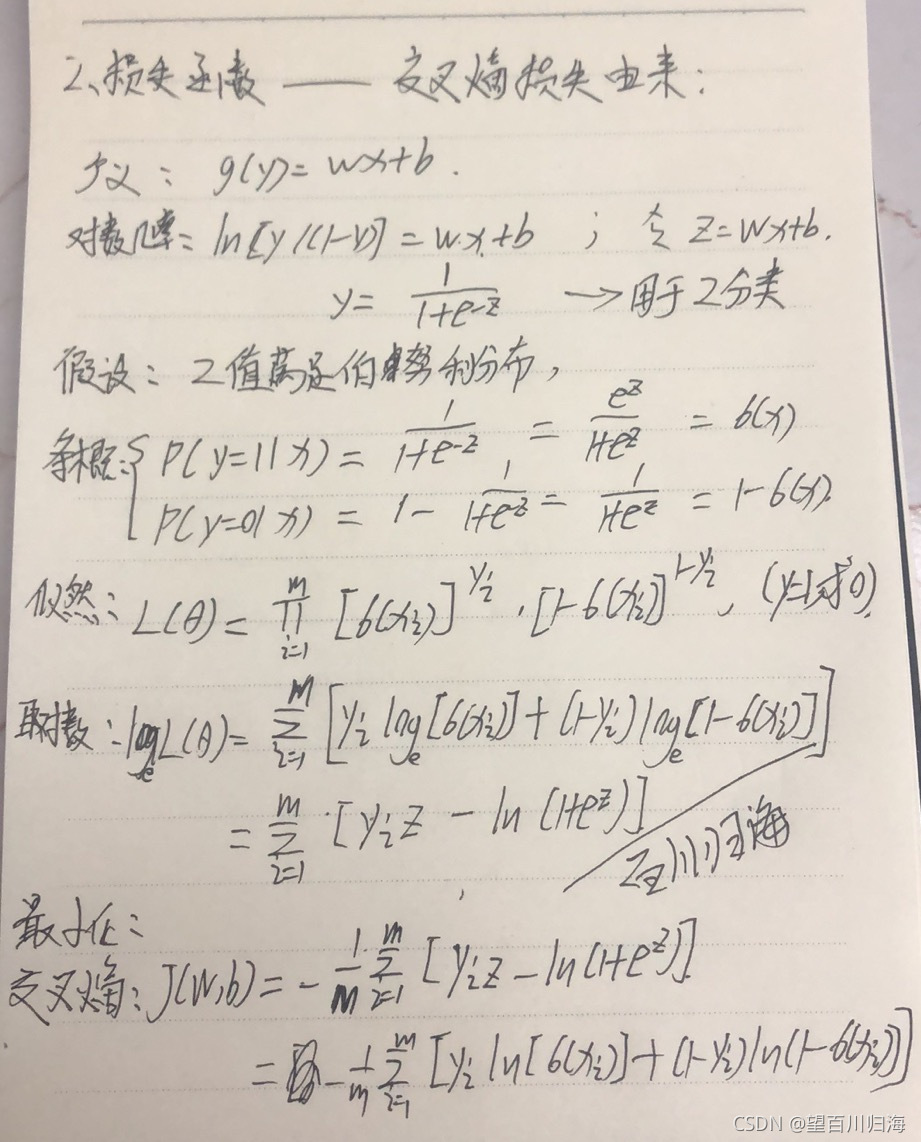 2、损失函数 —— 交叉熵损失由来：
定义： g(y)= wx+b .
对数几率： ln[y/(1-y)] = w.x+b ； 令 z=wx+b.
y= 1/(1+e^-z) → 用于2分类
假设： 2值满足伯努利分布，
条概：{ P(y=1|x) = 1/(1+e^-z) = e^z/(1+e^z) = б(x)
P(y=0|x) = 1- 1/(1+e^-z) = 1/(1+e^z) = 1-б(x).
似然： L(θ) = ∏_{i=1}^{m} [б(xi)]^{yi} · [1-б(xi)]^{1-yi} , (y=1或0)
取对数：log_e L(θ)= Σ_{i=1}^{m} [yi log_e[б(xi)] + (1-yi) log_e[1-б(xi)]]
= Σ_{i=1}^{m} [yi z - ln(1+e^z)]
百川归海
最小化：
交叉熵：J(w,b) = - 1/m Σ_{i=1}^{m} [yi z - ln(1+e^z)]
= - 1/m Σ_{i=1}^{m} [yi ln[б(xi)] + (1-yi) ln(1-б(xi))]
CSDN @望百川归海